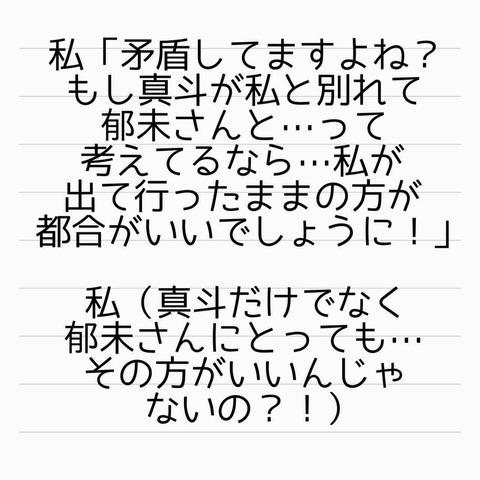 私「矛盾してますよね？
もし真斗が私と別れて
郁未さんと…って
考えてるなら…私が
出て行ったままの方が
都合がいいでしょうに！」
私（真斗だけでなく
郁未さんにとっても…
その方がいいんじゃ
ないの？！）